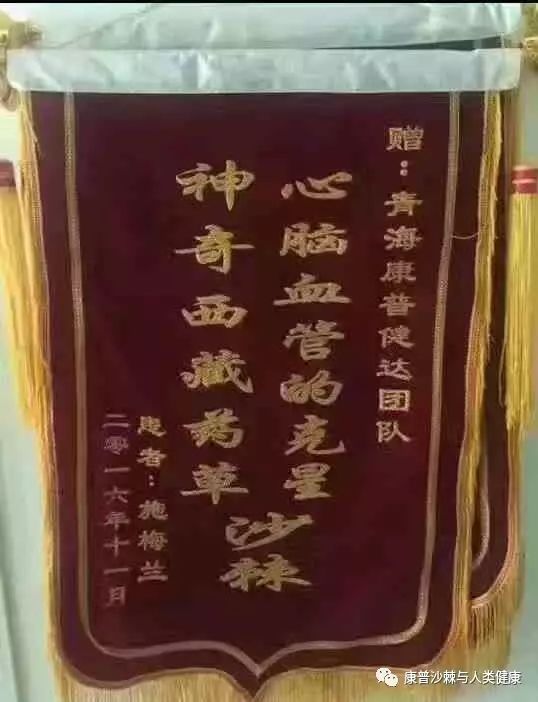 赠：青海康普健达团队
心脑血管的克星
神奇西藏药草
沙棘
患者：施梅兰
二零一六年十一月
康普沙棘与人类健康